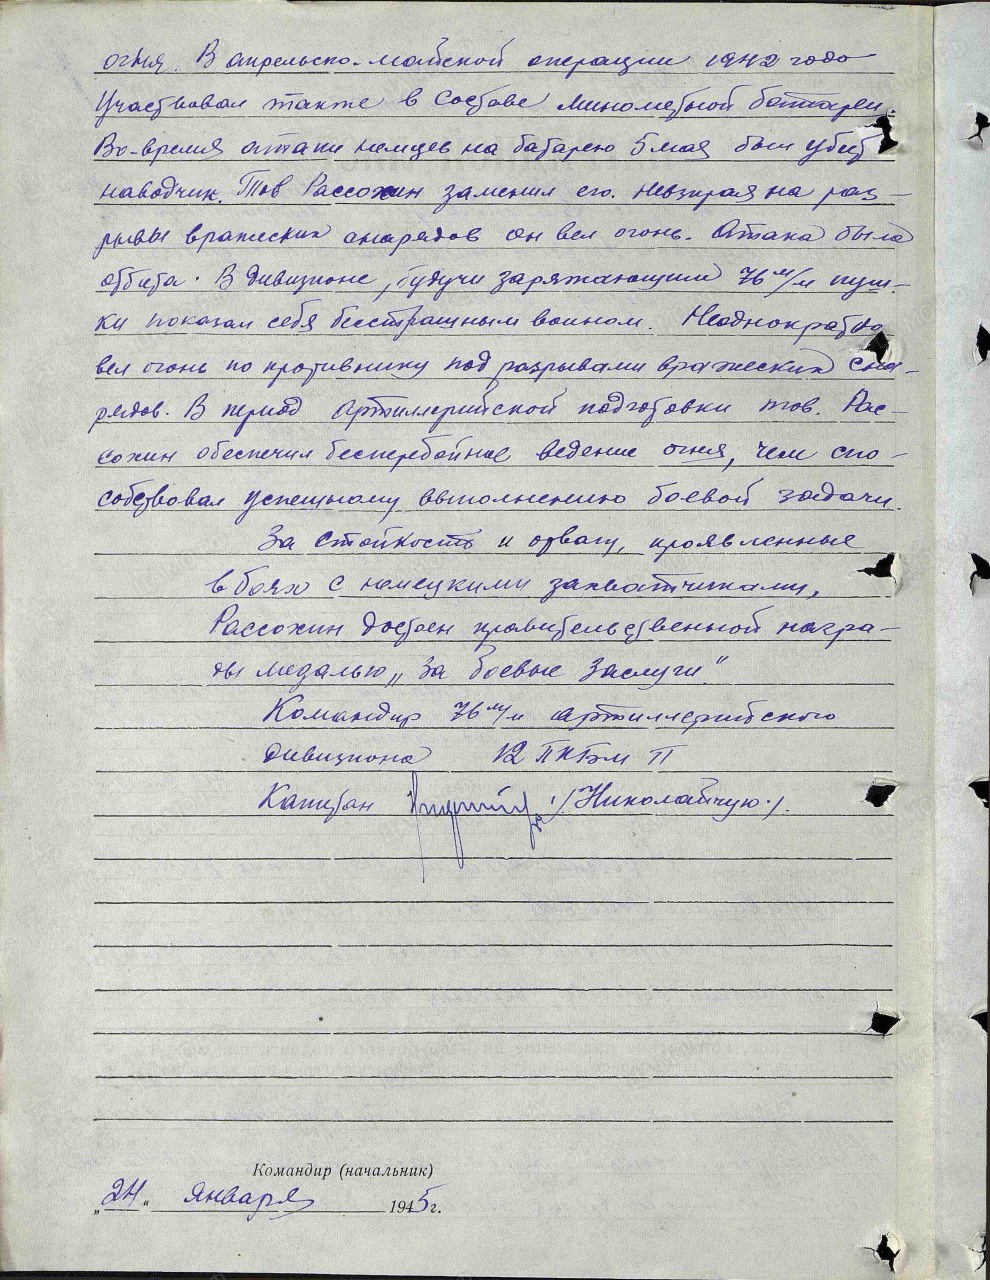 огня. В апрельско-майской операции 1942 года
Участвовал также в составе минометной баттареи.
Во-время атаки немцев на батарею 5 мая был убит
наводчик. Тов Рассохин заменил его. Невзирая на раз-
рывы вражеских снарядов он вел огонь. Атака была
отбита. В дивизионе, будучи заряжающим 76 м/м пуш-
ки показал себя бесстрашным воином. Неоднократно
вел огонь по противнику под разрывами вражеских сна-
рядов. В период артиллерийской подготовки тов. Рас-
сохин обеспечил бесперебойное ведение огня, чем спо-
собствовал успешному выполнению боевой задачи.
За стойкость и отвагу, проявленные
в боях с немецкими захватчиками,
Рассохин достоен правительственной награ-
ды медалью „За боевые заслуги"
Командир 76 м/м артиллерийского
дивизиона 12
Капитан /Николайчук/.
Командир (начальник)
„24" января 1945 г.